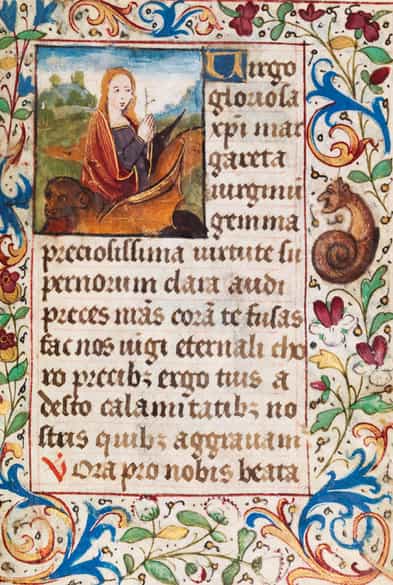 Virgo
gloriosa
xpi mar
gareta
uirginū
gemma
preciosissima uirtute su
pernorum clara audi
preces nr̄as corā te fusas
fac nos iugi eternali cho
ro precibꝫ ergo tuis a
desto calamitatibꝫ no
stris quibꝫ aggrauam
V Ora pro nobis beata